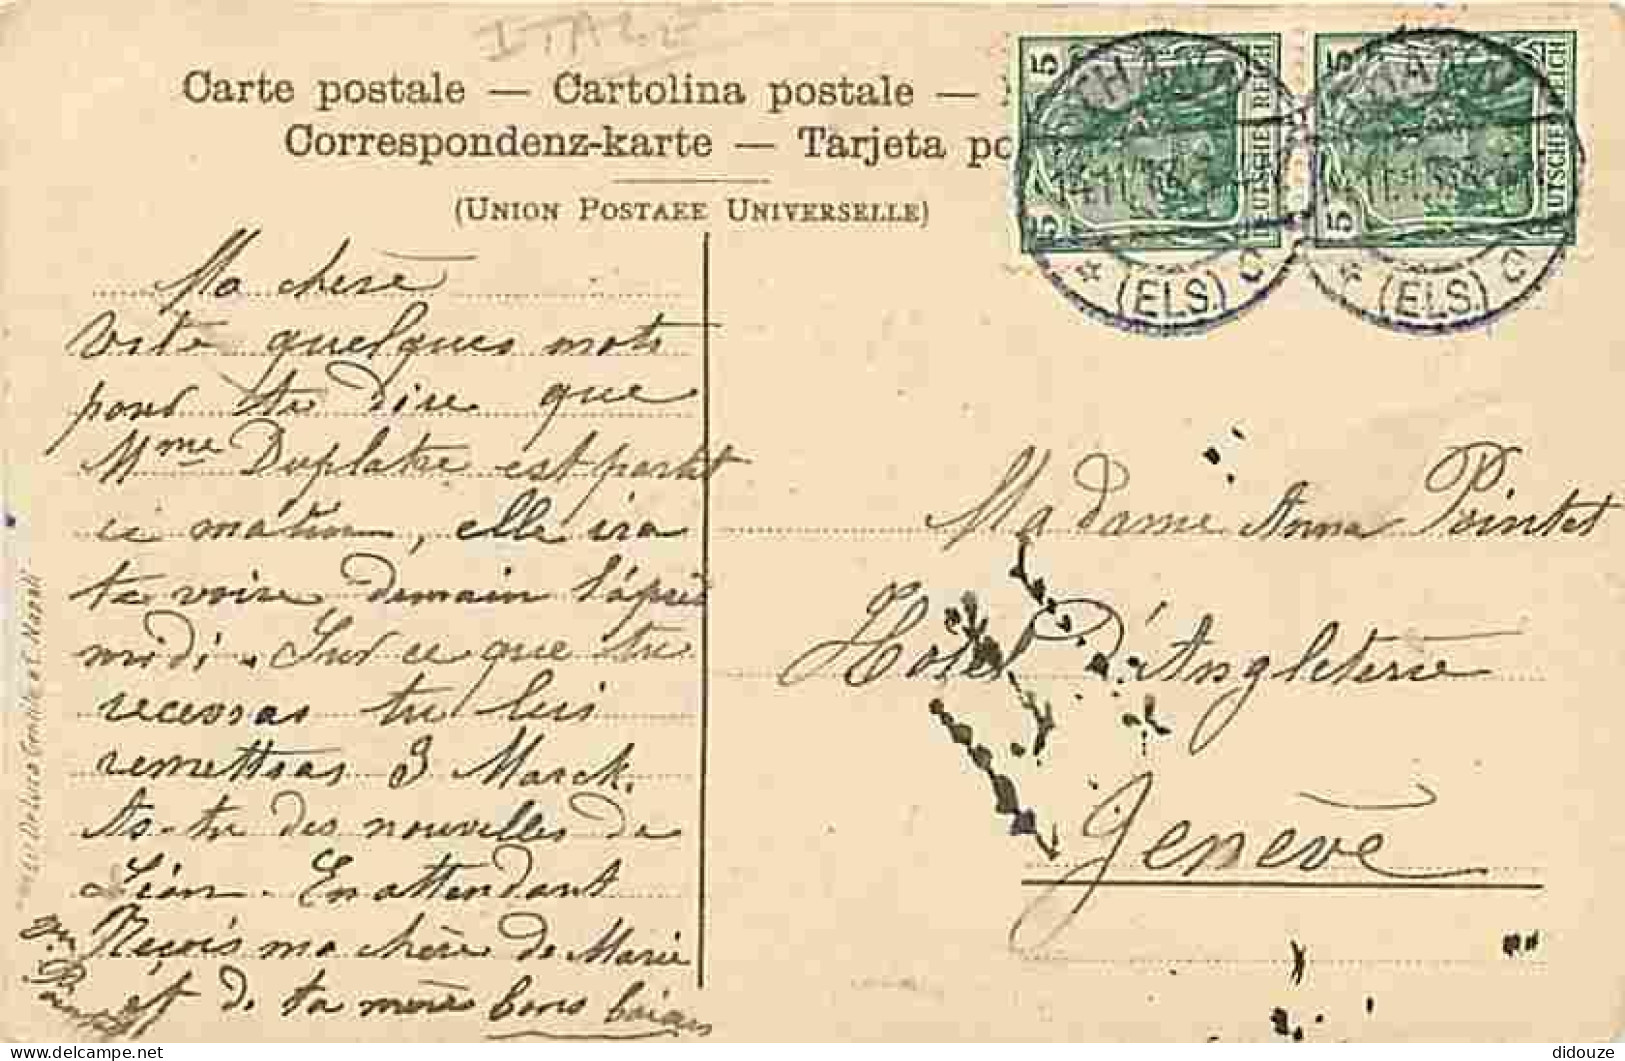 ITALIE
Carte postale — Cartolina postale —
Correspondenz-karte — Tarjeta po
(Union Postaee Universelle)
5 5 DEUTSCHES REICH
5 5 DEUTSCHES REICH
* (ELS.) C
* (ELS.) C
Ma chère
Vite quelques mots
pour te dire que
Mme Duplatre est partit
ce matin, elle ira
te voire demain l'après
midi. Sur ce que tu
recevras tu luis
remettras 3 Marck.
As-tu des nouvelles de
Léon. En attendant
Reçois ma chère de Marie
et de ta mère bons baisers
Madame Anna Pointet
Hôtel d'Angleterre
Genève
didouze